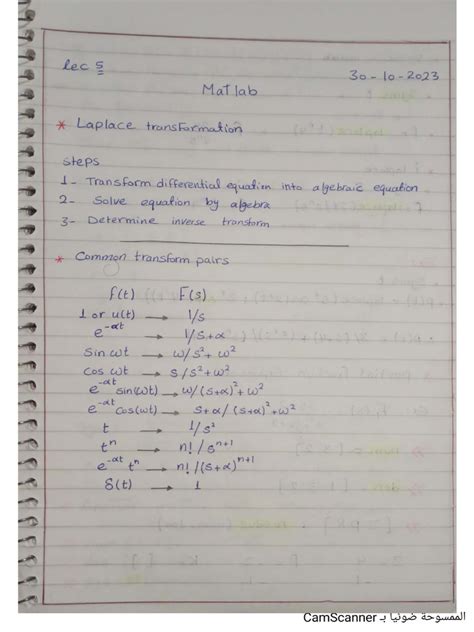 Lec 5
30-10-2023
Matlab
* Laplace transformation
steps
1- Transform differential equation into algebraic equation
2- Solve equation by algebra
3- Determine inverse transform
* Common transform pairs
f(t) F(s)
1 or u(t) → 1/s
e^-αt → 1/s+α
Sin ωt → ω/s²+ω²
cos ωt → s/s²+ω²
e^-αt sin(ωt) → ω/(s+α)²+ω²
e^-αt cos(ωt) → s+α/(s+α)²+ω²
t → 1/s²
t^n → n!/s^n+1
e^-αt t^n → n!/(s+α)^n+1
δ(t) → 1
الممسوحة ضوئيا بـ CamScanner